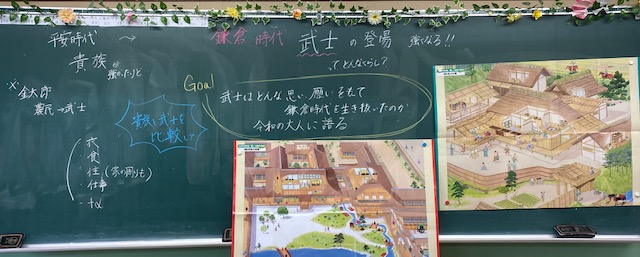 平安時代 → 鎌倉時代 武士の登場 強くなる!!
貴族 ってどんなくらし?
が強かったけど
金太郎
農民→武士
貴族と武士を
比較して
Goal
武士はどんな思い、願いをもって
鎌倉時代を生き抜いたのか
令和の大人に語る
衣
食
住(家の周りも)
仕事
+α